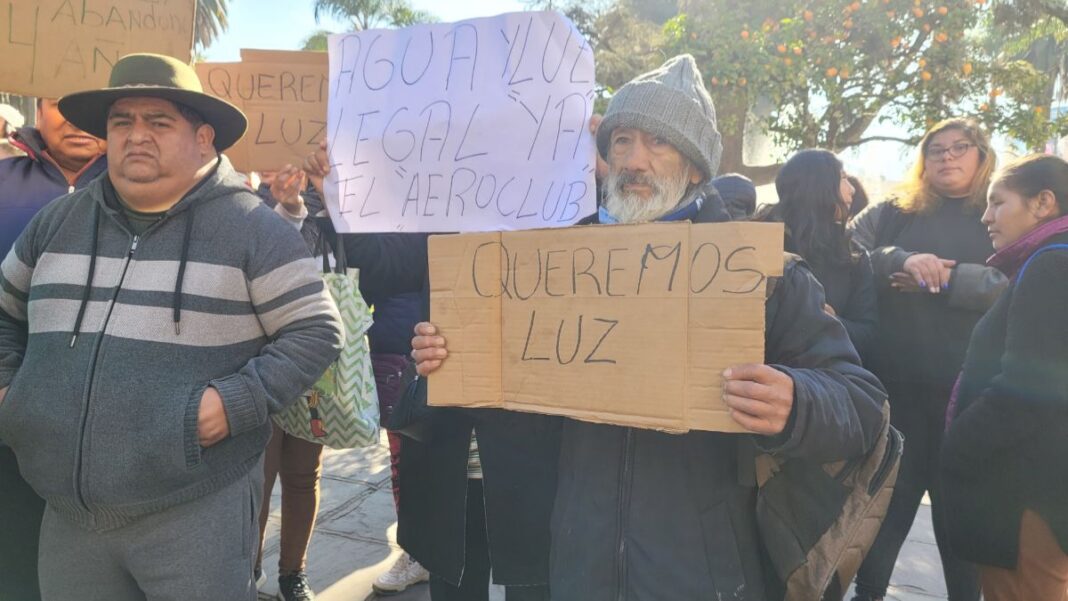 4 ABANDON
AÑ
QUEREM
LUZ
AGUA Y LUZ
LEGAL "YA"
EL "AEROCLUB"
QUEREMOS
LUZ